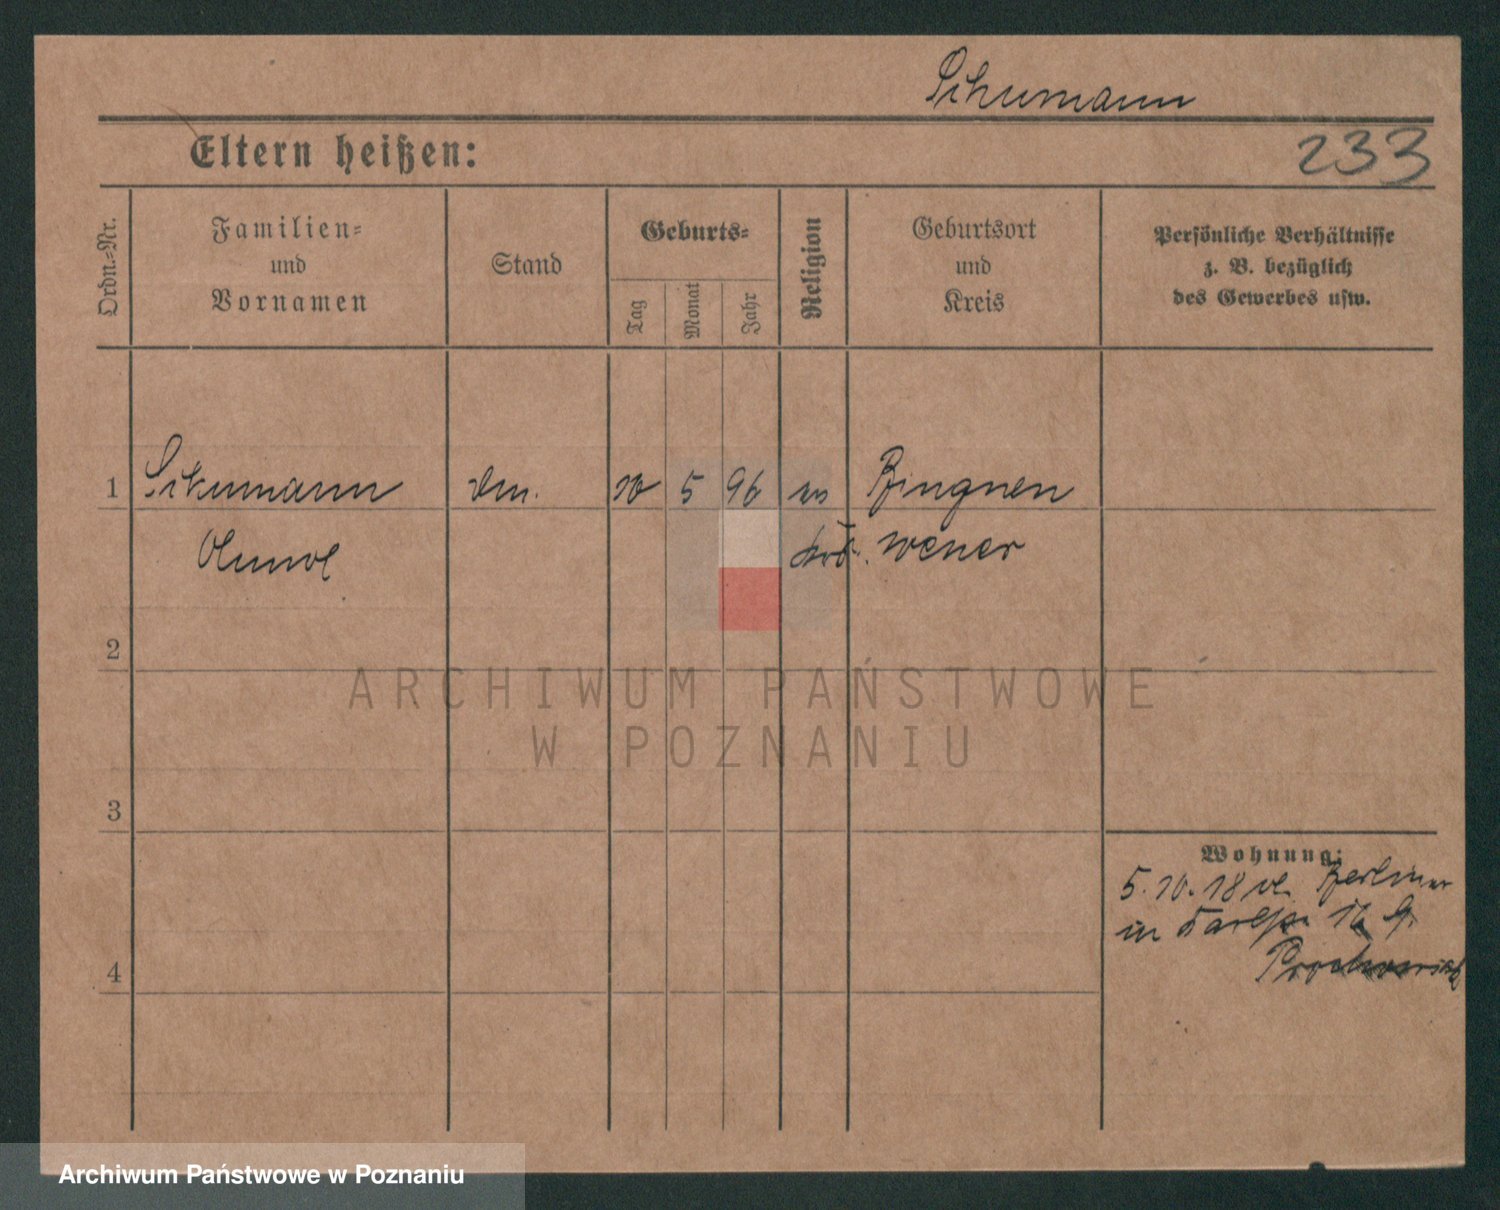 Schumann
Eltern heißen:
233
Ordn.-Nr.
Familien-
und
Vornamen
Stand
Geburts-
Tag
Monat
Jahr
Religion
Geburtsort
und
Kreis
Persönliche Verhältnisse
z. B. bezüglich
des Gewerbes usw.
1 Schumann 5 96
2
3
4
Wohnung:
5. 10. 18 Berliner
in 16
ARCHIWUM PAŃSTWOWE
W POZNANIU
Archiwum Państwowe w Poznaniu